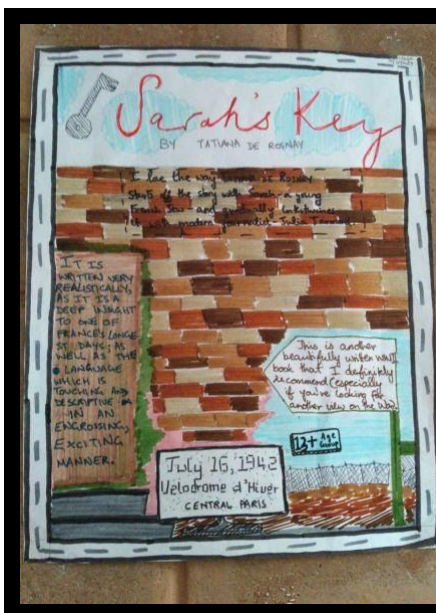 Sarah's Key
BY TATIANA DE ROSNAY
I love the way Tatiana de Rosnay
starts off the story with Sarah - a young
French Jew - and gradually intertwines
it with modern journalist Julia
IT IS
WRITTEN VERY
REALISTICALLY,
AS IT IS A
DEEP INSIGHT
TO ONE OF
FRANCE'S LONGE
ST DAYS; AS
WELL AS THE
LANGUAGE
WHICH IS
TOUCHING AND
DESCRIPTIVE
IN AN
ENGROSSING,
EXCITING
MANNER.
This is another
beautifully written WWII
book that I definitely
recommend (especially
if you're looking for
another view on the War).
13+ Age Group
July 16, 1942
Velodrome d'Hiver
CENTRAL PARIS